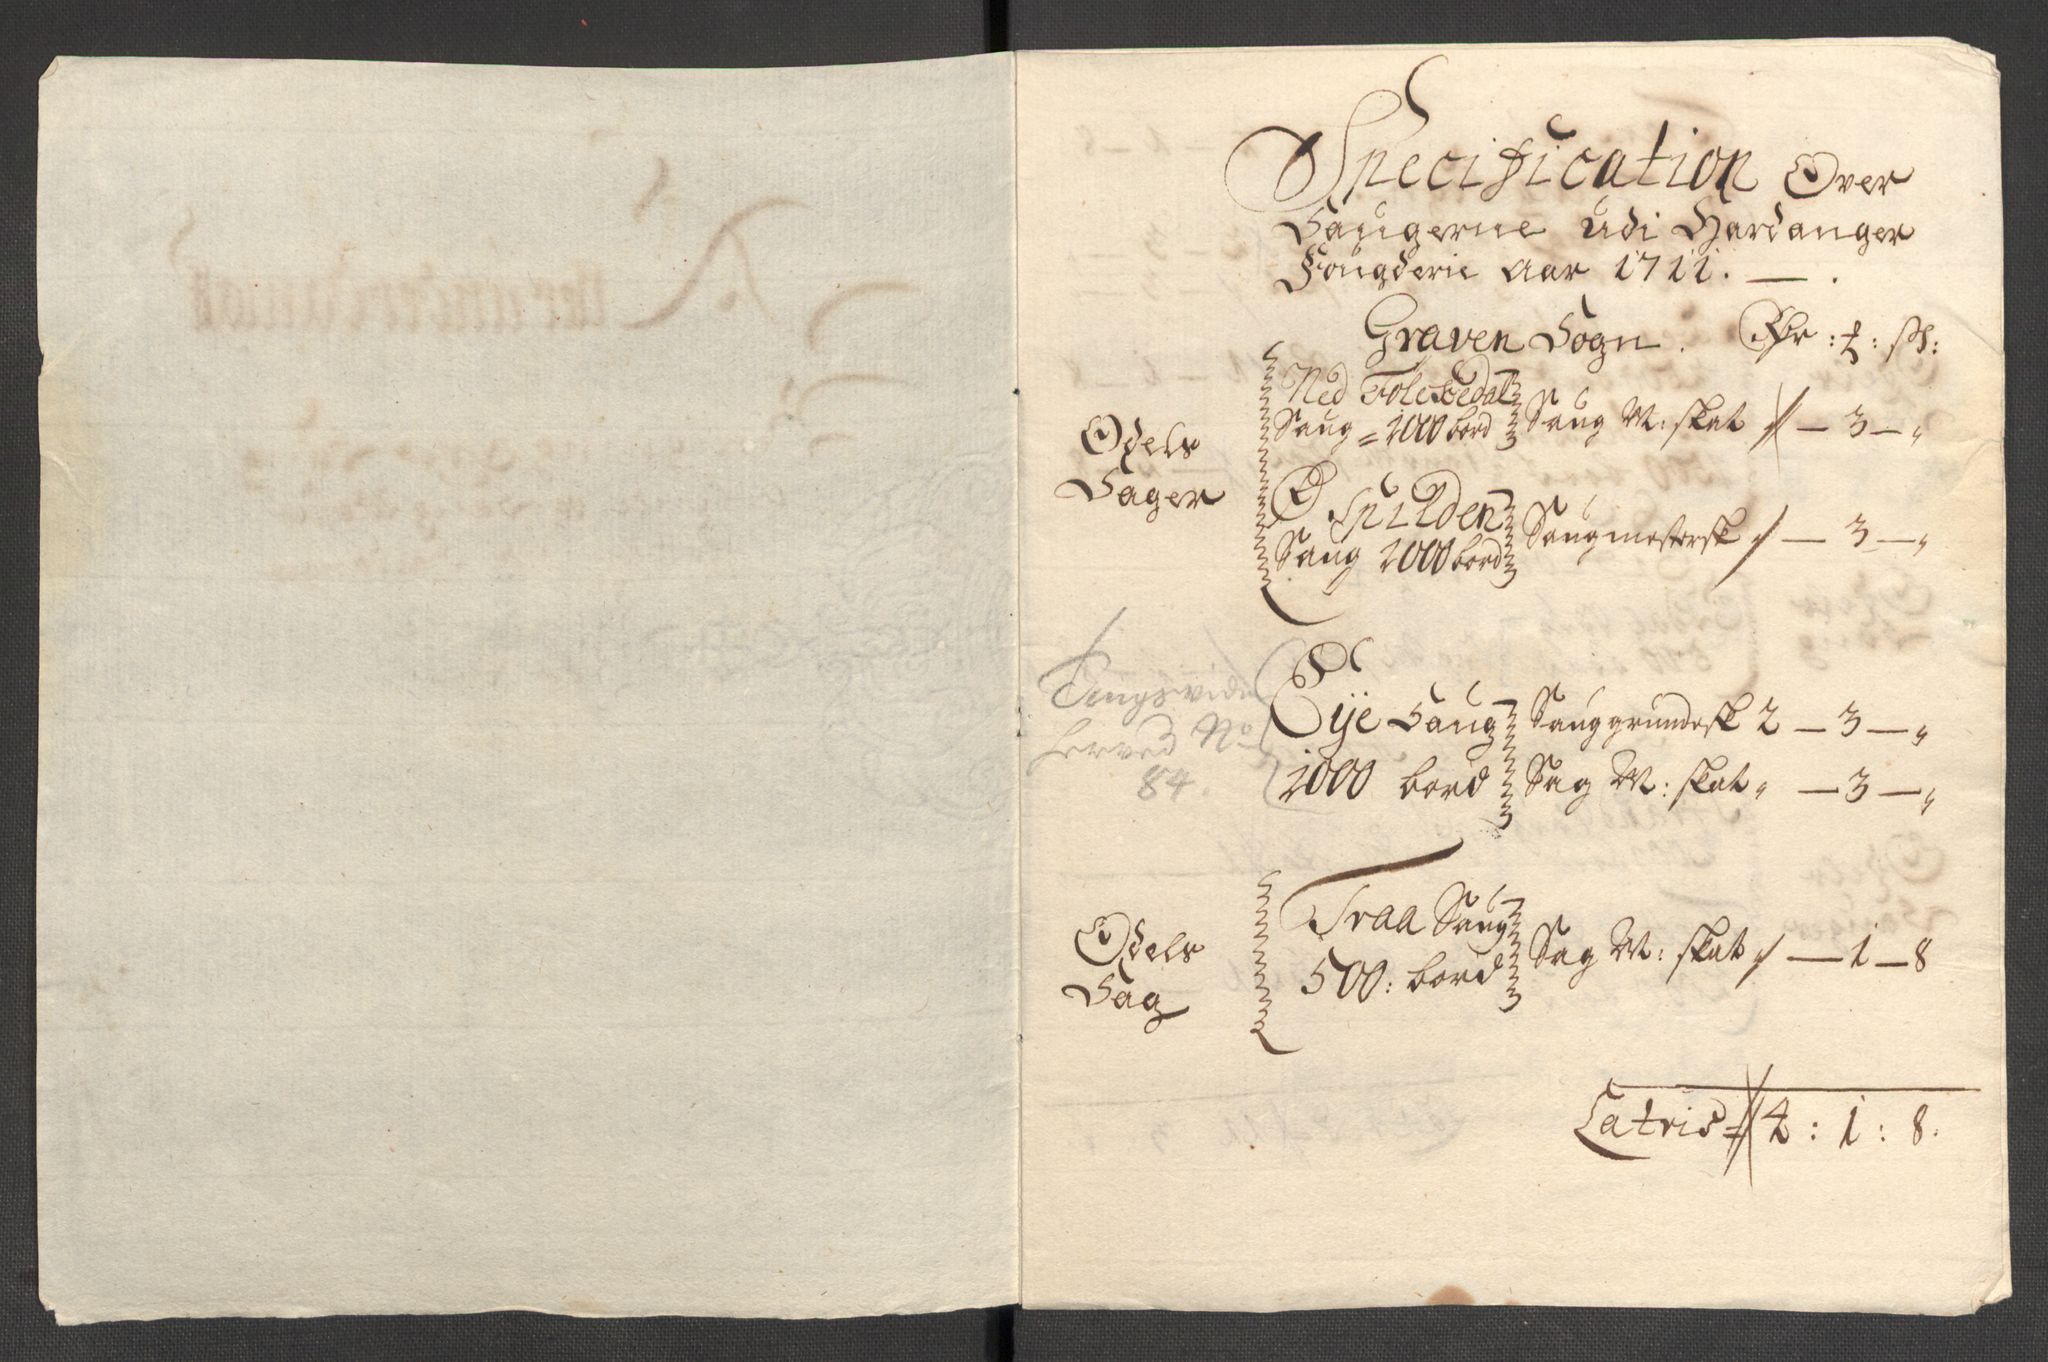 Specification Over
Saugerne udi Hardanger
Fougderie Aar 1711. —.
Graven Sogn. Rdr : ꝑ : sh:
Odels
Sager
Ned Folckedal
Saug = 1000 bord
Saug M: skat // — 3 — „
Ø Spilden
Saug 1000 bord
Saugmestersk „/ — 3 — „
Tingsvidne
herved No
84.
Eje Saug
1000 bord
Sauggrundesk 2 — 3 — „
Sag M: skat „ — 3 — „
Odels
Sag
Traa Saug
500: bord
Sag M: skat „/ — 1 — 8
Latris = // 4 : 1 : 8.